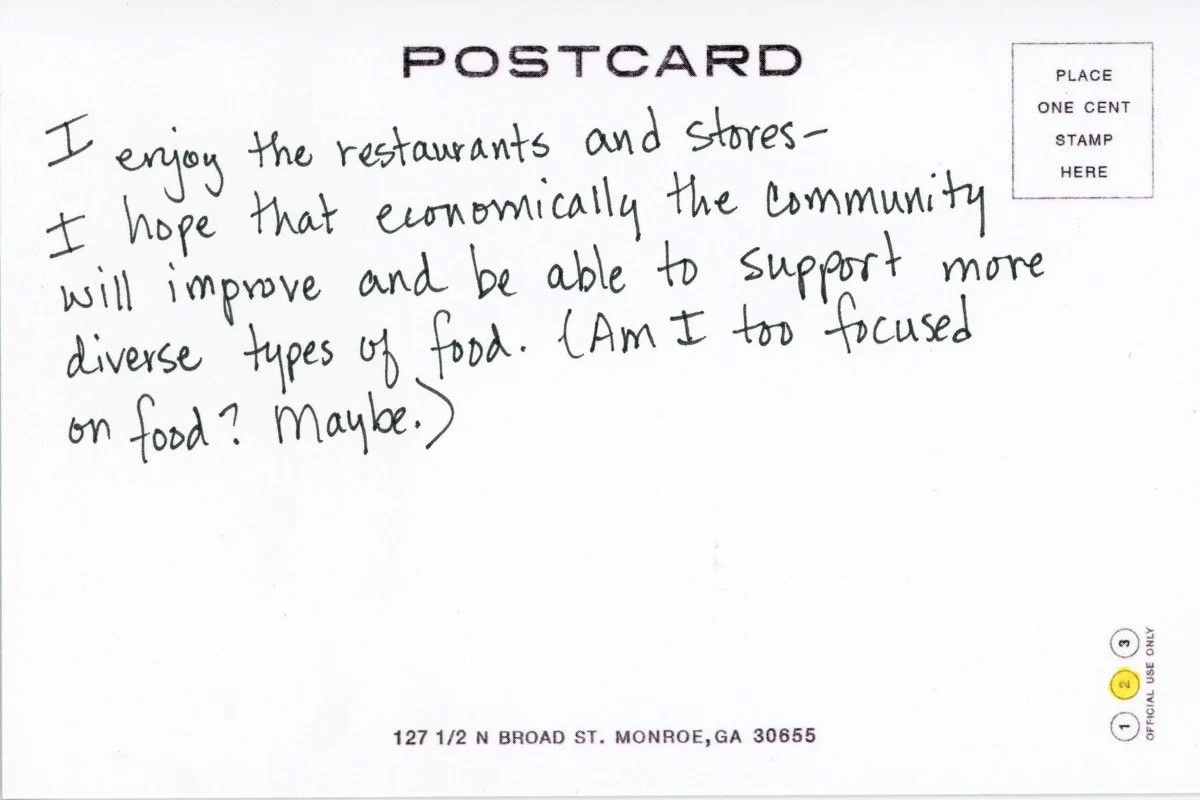 POSTCARD
PLACE
ONE CENT
STAMP
HERE
I enjoy the restaurants and stores—
I hope that economically the community
will improve and be able to support more
diverse types of food. (Am I too focused
on food? Maybe.)
1 2 3
OFFICIAL USE ONLY
127 1/2 N BROAD ST. MONROE,GA 30655